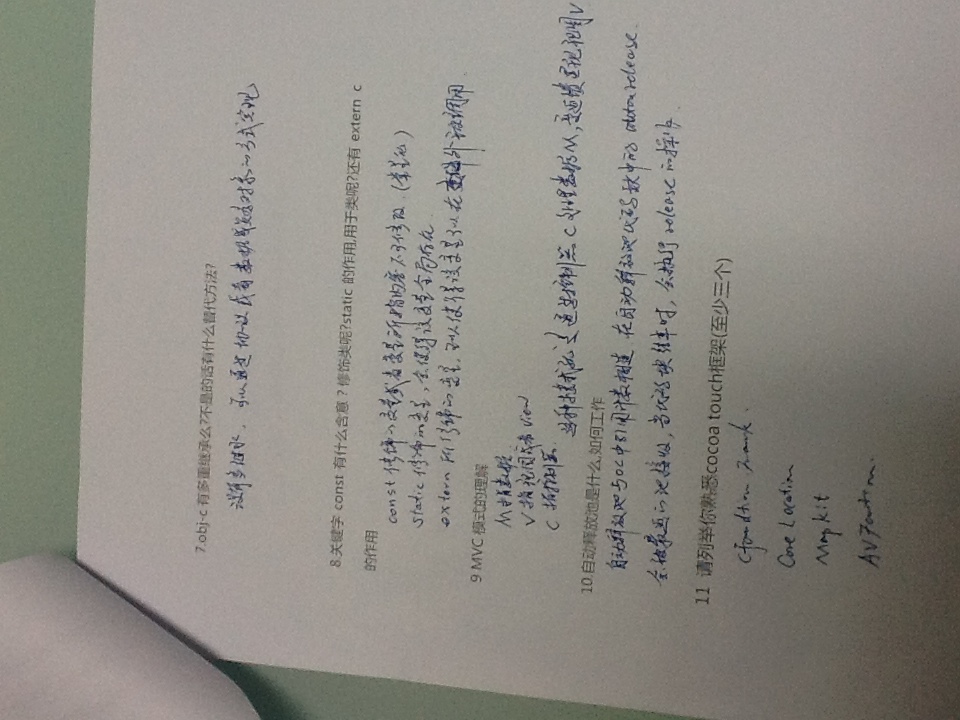 7.obj-c 有多重继承么?不是的话有什么替代方法?
没有多继承，可以通过协议或者数据或者对象的方式实现
8.关键字 const 有什么含意？修饰类呢?static 的作用,用于类呢?还有 extern c
的作用
const 修饰的变量或者变量所指内容不可修改.（常量化）
static 修饰的变量，会使得该变量全局存在.
extern 所修饰的变量，可以使得该变量可以在文件外被调用.
9 MVC 模式的理解
M 指数据.
V 指视图或者 View
C 指控制器.
这种模式就是通过控制器 C 处理数据 M，反馈到视图 V
10.自动释放池是什么,如何工作
自动释放池与OC中引用计数相连. 在自动释放池代码块中的 autorelease.
会被最近的池接收，当代码块结束时，会执行 release 的操作.
11 请列举你熟悉cocoa touch框架(至少三个)
Core Location
Map kit